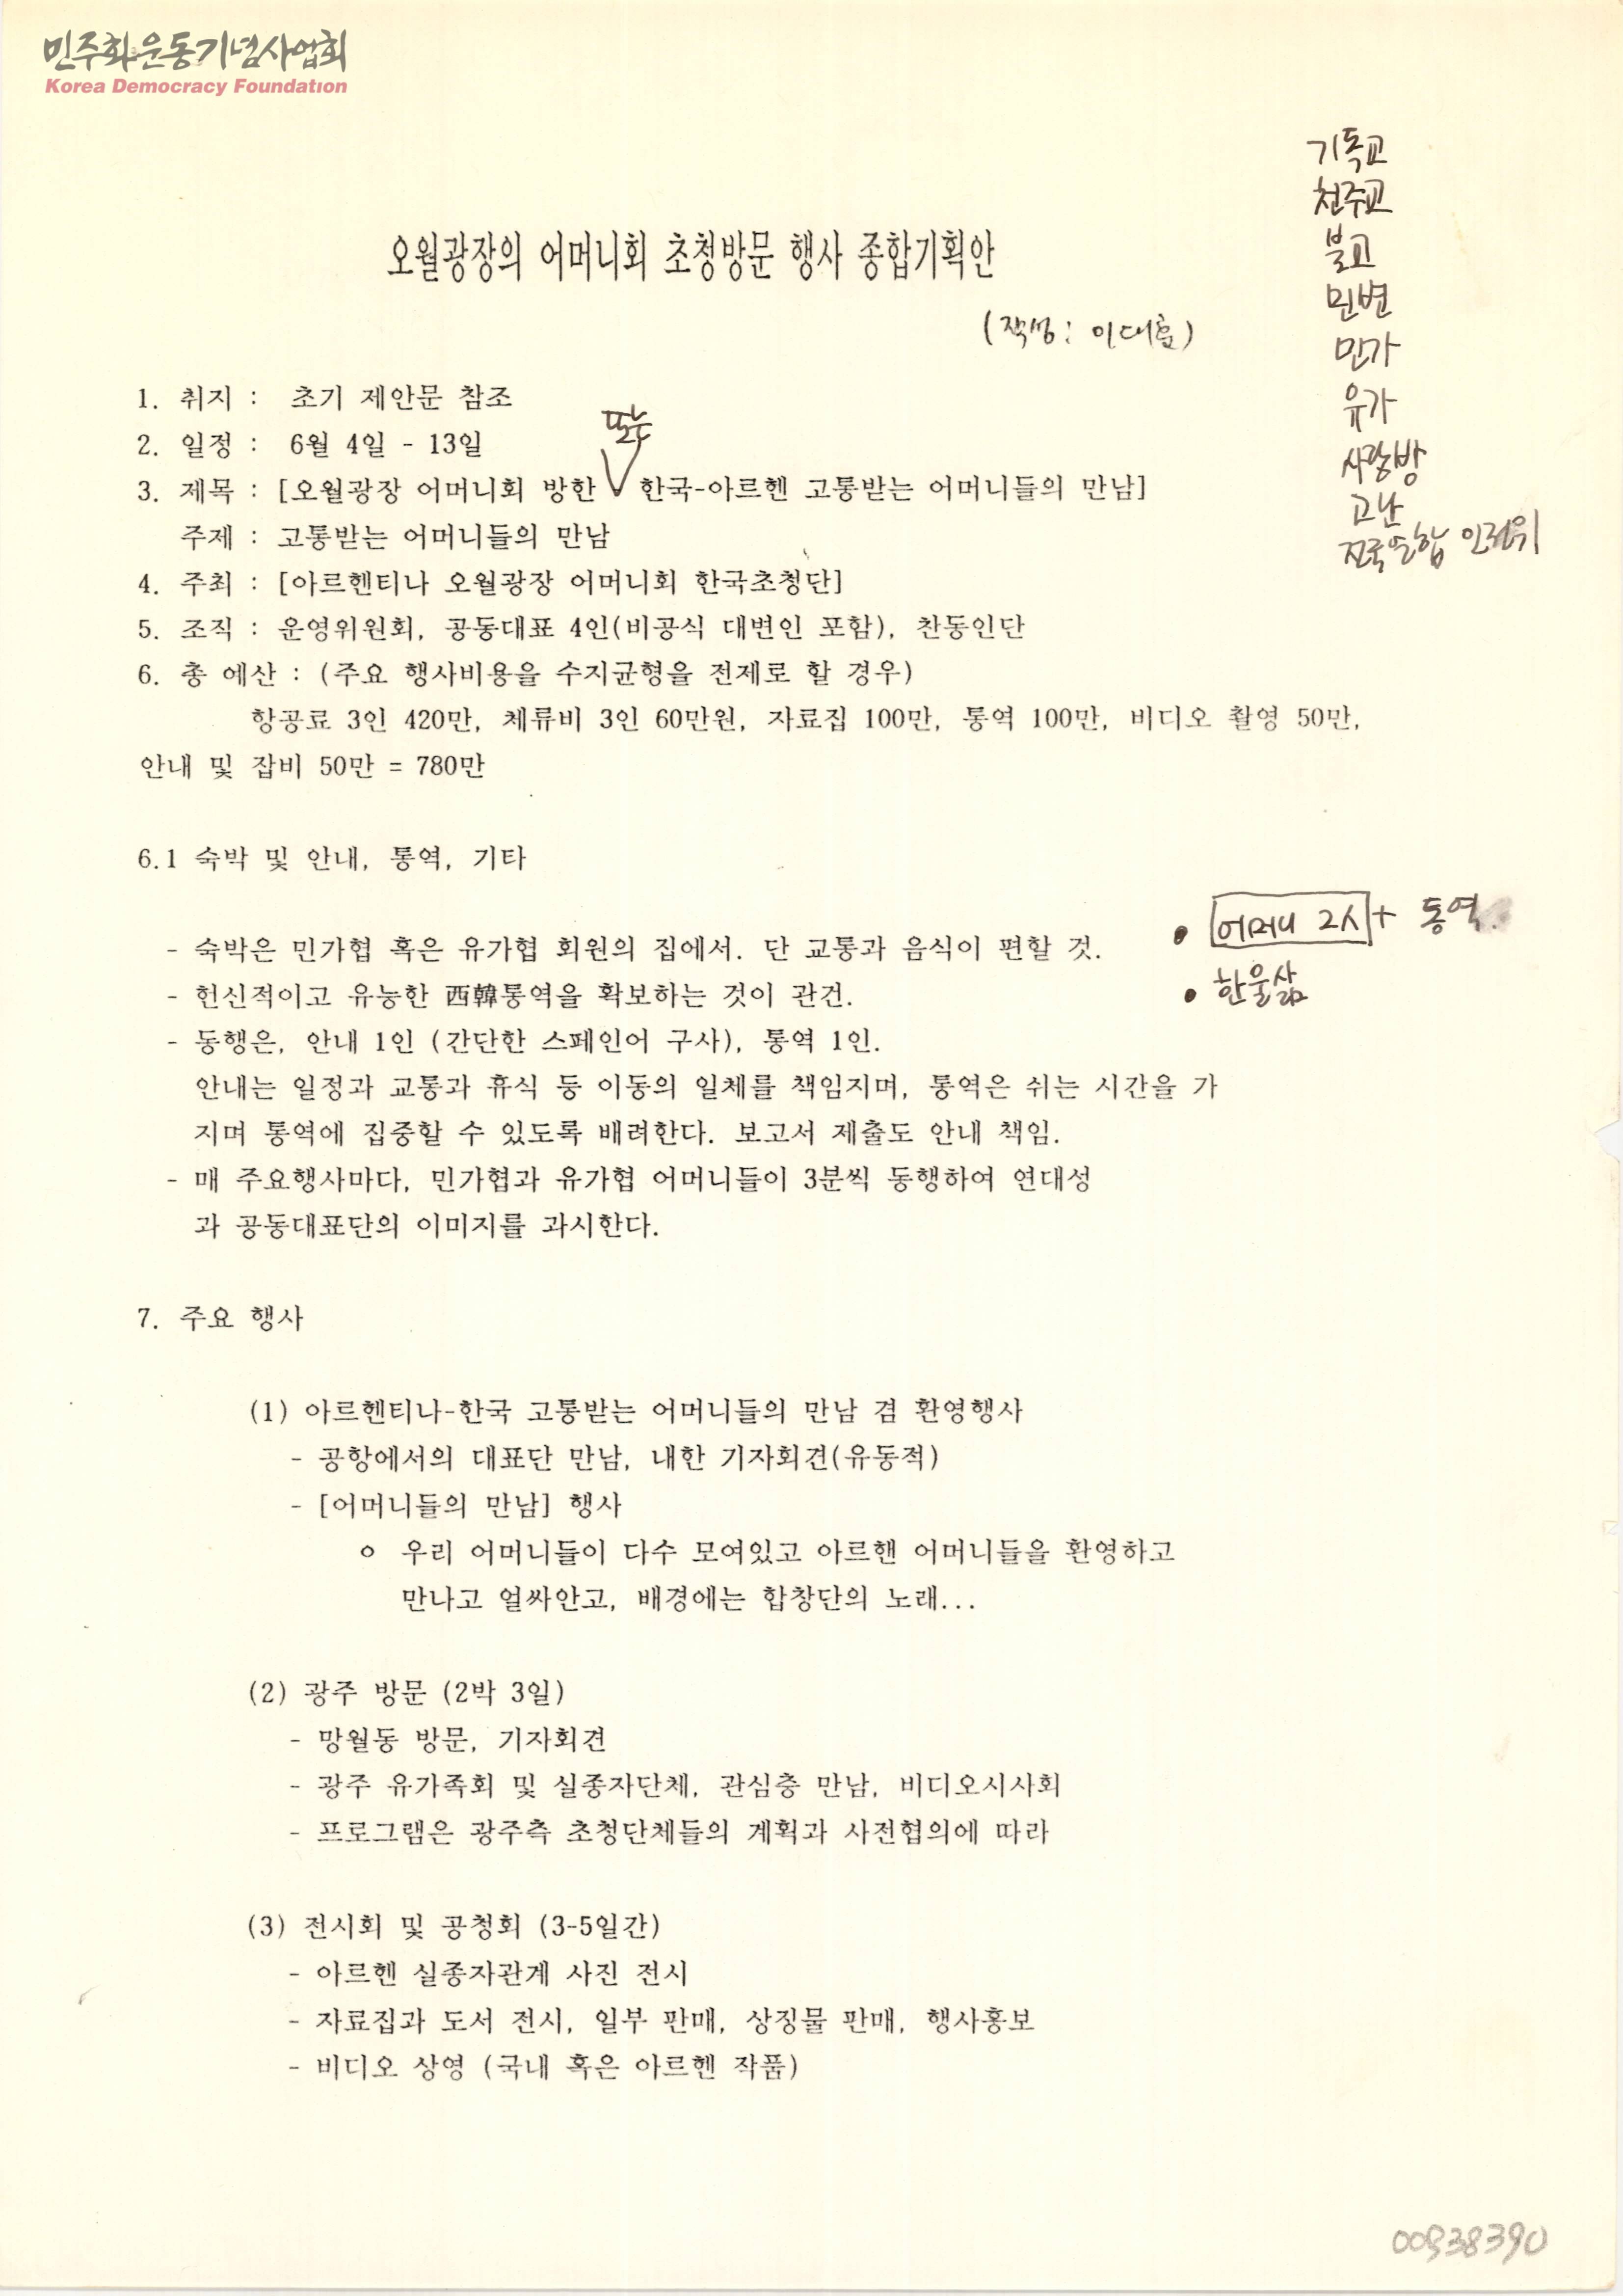 민주화운동기념사업회
Korea Democracy Foundation
기독교
천주교
불교
민변
민가
유가
사랑방
고난
전국연합 인권위
오월광장의 어머니회 초청방문 행사 종합기획안
(작성: 이대훈)
1. 취지 : 초기 제안문 참조
2. 일정 : 6월 4일 - 13일
또는
3. 제목 : [오월광장 어머니회 방한 한국-아르헨 고통받는 어머니들의 만남]
주제 : 고통받는 어머니들의 만남
4. 주최 : [아르헨티나 오월광장 어머니회 한국초청단]
5. 조직 : 운영위원회, 공동대표 4인(비공식 대변인 포함), 찬동인단
6. 총 예산 : (주요 행사비용을 수지균형을 전제로 할 경우)
항공료 3인 420만, 체류비 3인 60만원, 자료집 100만, 통역 100만, 비디오 촬영 50만,
안내 및 잡비 50만 = 780만
6.1 숙박 및 안내, 통역, 기타
• 어머니 2시 + 통역
- 숙박은 민가협 혹은 유가협 회원의 집에서. 단 교통과 음식이 편할 것.
• 한울삶
- 헌신적이고 유능한 西韓통역을 확보하는 것이 관건.
- 동행은, 안내 1인 (간단한 스페인어 구사), 통역 1인.
안내는 일정과 교통과 휴식 등 이동의 일체를 책임지며, 통역은 쉬는 시간을 가
지며 통역에 집중할 수 있도록 배려한다. 보고서 제출도 안내 책임.
- 매 주요행사마다, 민가협과 유가협 어머니들이 3분씩 동행하여 연대성
과 공동대표단의 이미지를 과시한다.
7. 주요 행사
(1) 아르헨티나-한국 고통받는 어머니들의 만남 겸 환영행사
- 공항에서의 대표단 만남, 내한 기자회견(유동적)
- [어머니들의 만남] 행사
o 우리 어머니들이 다수 모여있고 아르핸 어머니들을 환영하고
만나고 얼싸안고, 배경에는 합창단의 노래...
(2) 광주 방문 (2박 3일)
- 망월동 방문, 기자회견
- 광주 유가족회 및 실종자단체, 관심층 만남, 비디오시사회
- 프로그램은 광주측 초청단체들의 계획과 사전협의에 따라
(3) 전시회 및 공청회 (3-5일간)
- 아르헨 실종자관계 사진 전시
- 자료집과 도서 전시, 일부 판매, 상징물 판매, 행사홍보
- 비디오 상영 (국내 혹은 아르헨 작품)
00938390